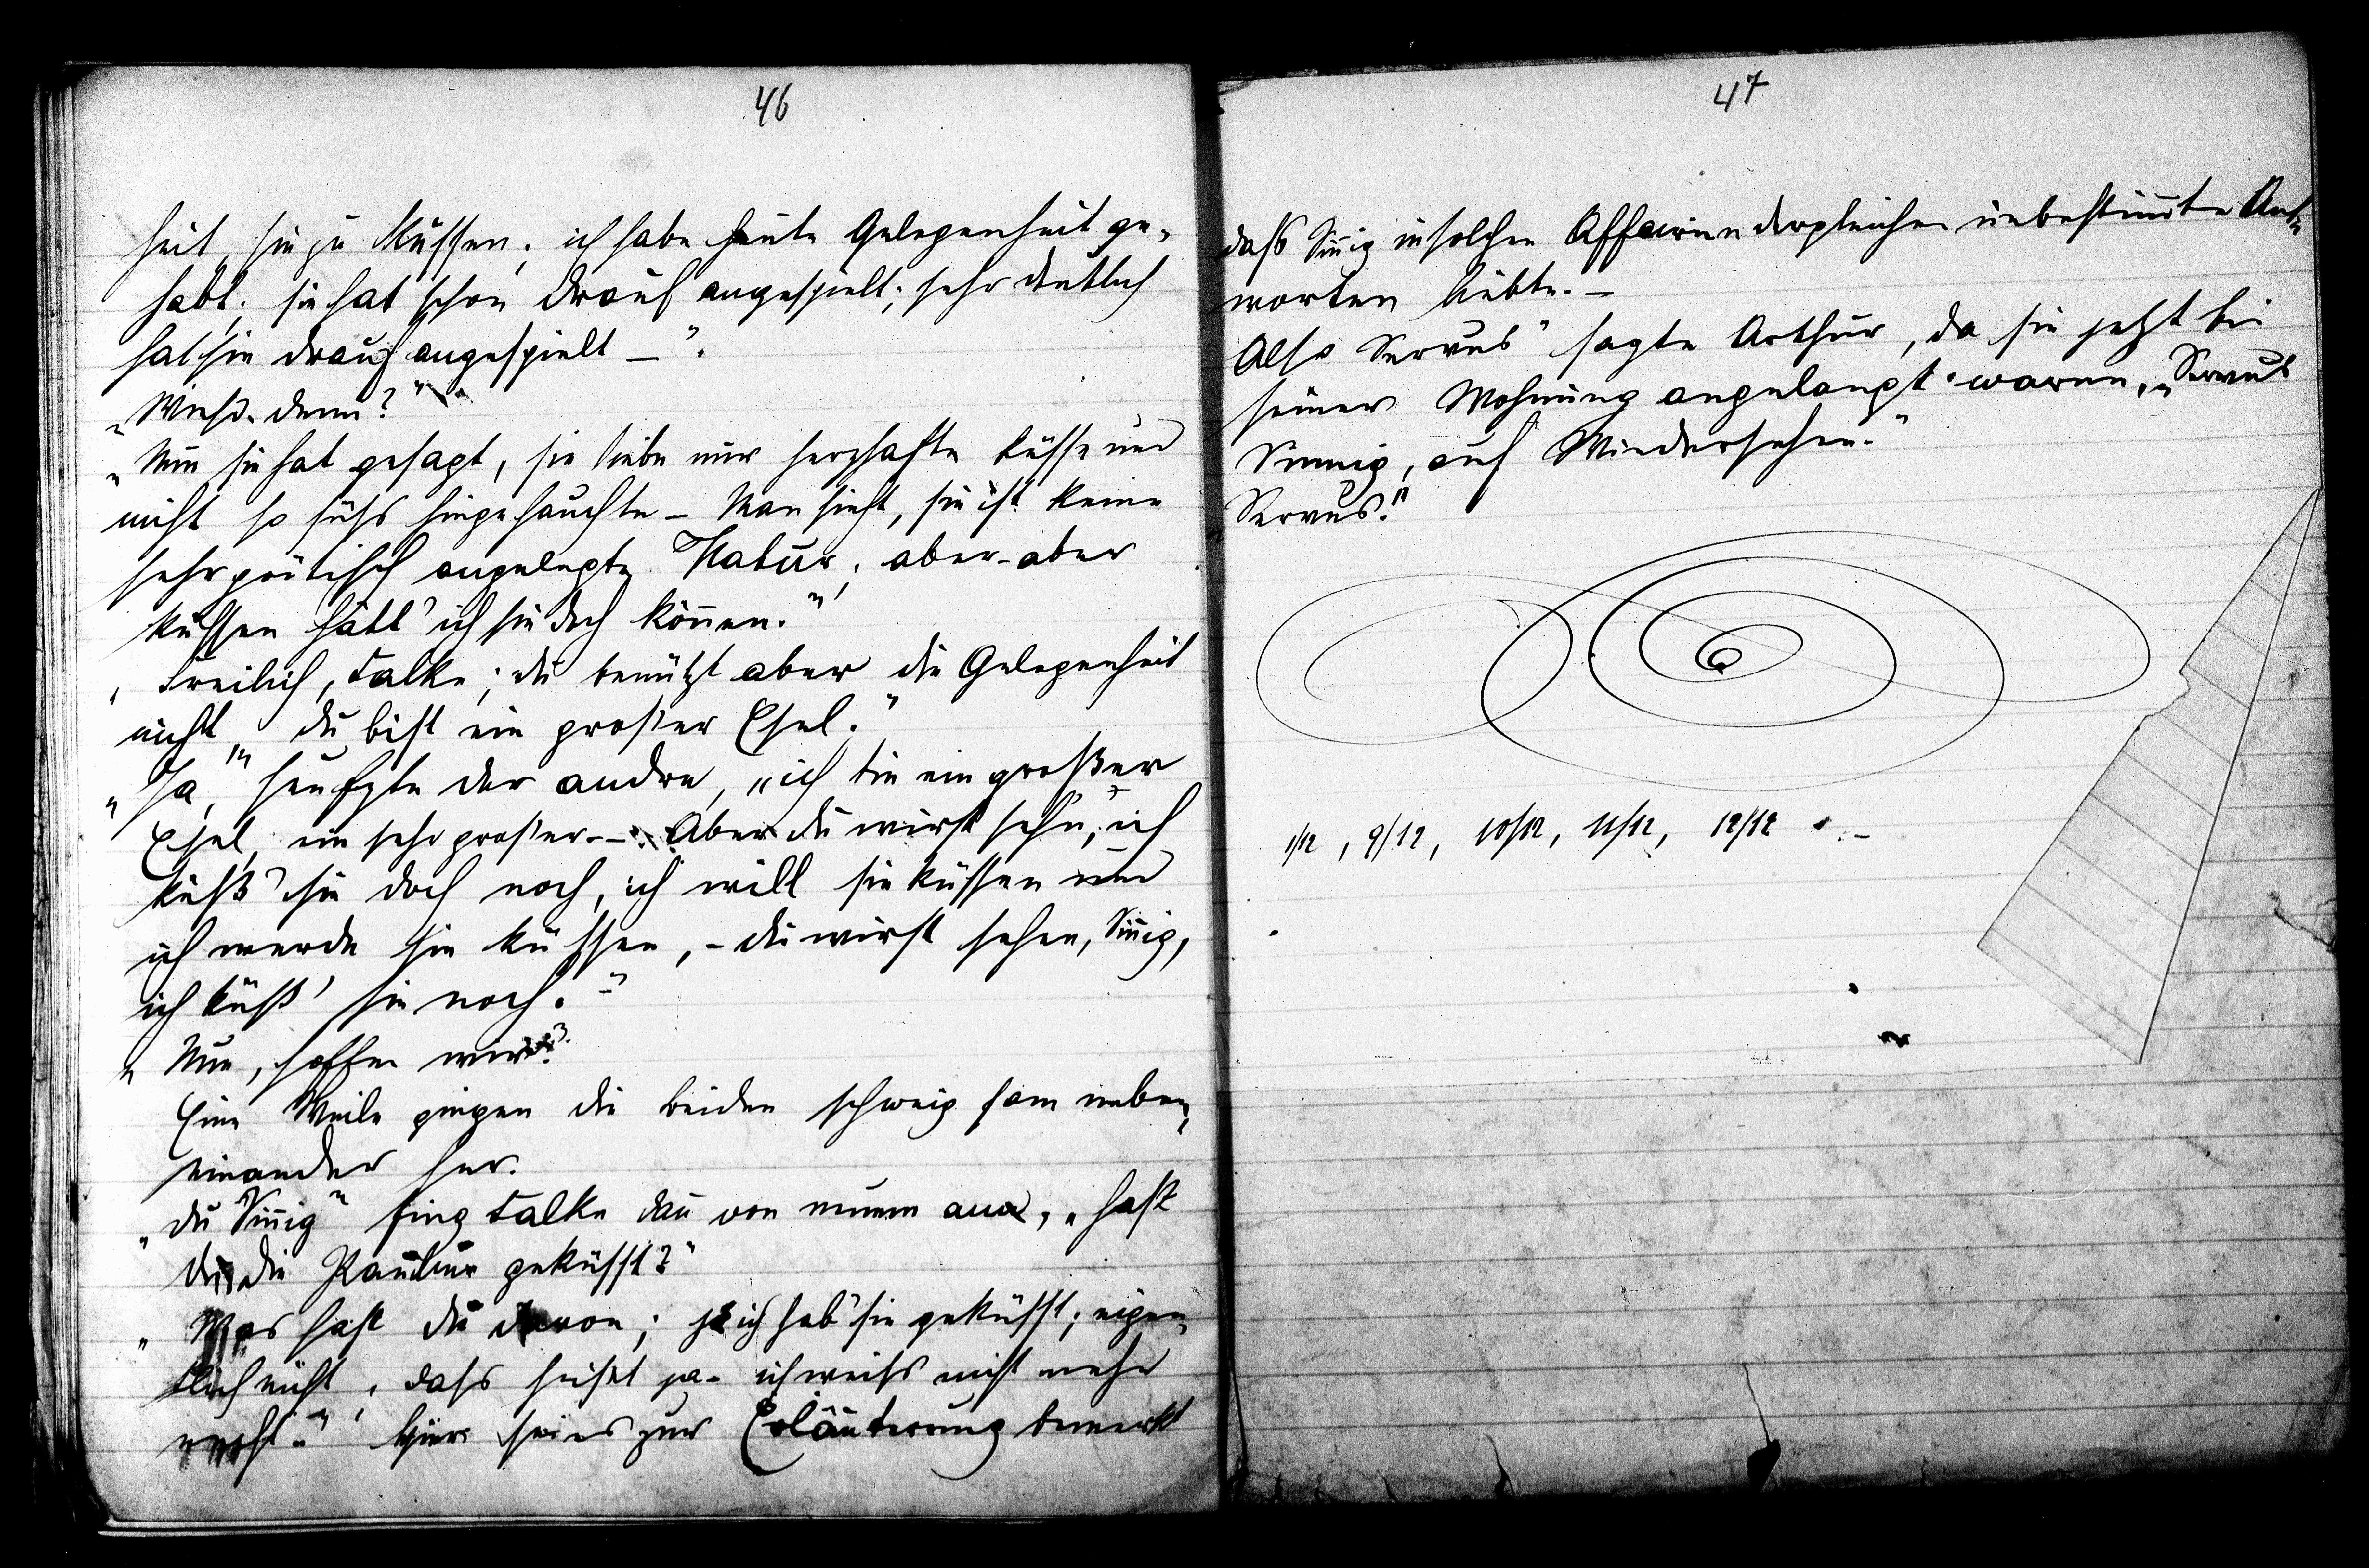 46
heit, sie zu küssen; ich habe heute Gelegenheit ge-
habt; sie hat schon drauf angespielt; sehr deutlich
hat sie drauf angespielt –".
„Wieso denn?"
„Nun sie hat gesagt, sie liebe nur herzhafte Küsse und
nicht so süss hingehauchte – Man sieht, sie ist keine
sehr poëtisch angelegte Natur; aber – aber
küssen hätt' ich sie doch können."
„Freilich, Falke; du benützt aber die Gelegenheit
nicht, du bist ein großer Esel."
„Ja," seufzte der andre, „ich bin ein großer
Esel, ein sehr großer. – Aber du wirst sehn, ich
küß' sie doch noch, ich will sie küssen und
ich werde sie küssen, – du wirst sehen, Sinnig,
ich küß' sie noch. –"
„Nun, hoffen wir's."
Eine Weile gingen die beiden schweigsam neben-
einander her.
„du Sinnig" fing Falke dann von neuem an, „hast
du die Pauline geküsst?"
„Was hast du davon; ja ich hab' sie geküsst; eigen-
tlich nicht, dass heisst ja – ich weiss nicht mehr
recht –" Hier sei es zur Erläuterung bemerkt
47
dass Sinnig in solchen Affairen dergleichen unbestimmte Ant-
worten liebte. –
Also Servus" sagte Arthur, da sie jetzt bei
seiner Wohnung angelangt waren, „Servus
Sinnig, auf Wiedersehen."
„Servus."
1/12, 9/12, 10/12, 11/12, 12/12 . –